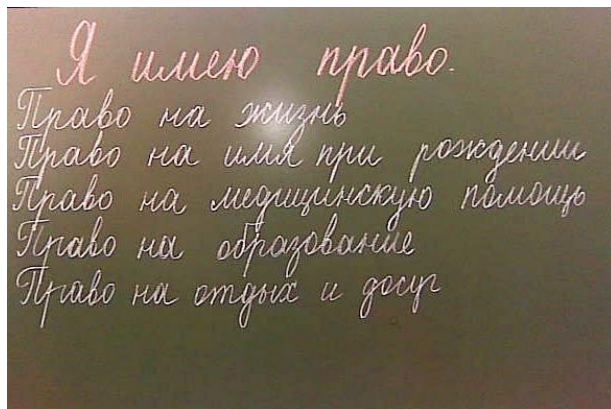 Я имею право.
Право на жизнь
Право на имя при рождении
Право на медицинскую помощь
Право на образование
Право на отдых и досуг